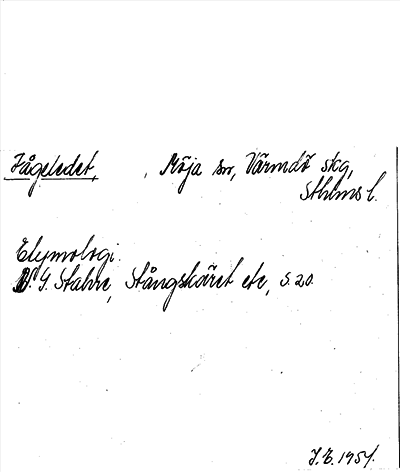 Fågeledet, , Möja sn, Värmdö skg,
Sthlms l.
Etymologi.
N. G. Stahre, Stångskäret etc, s. 20.
J. E. 1957.